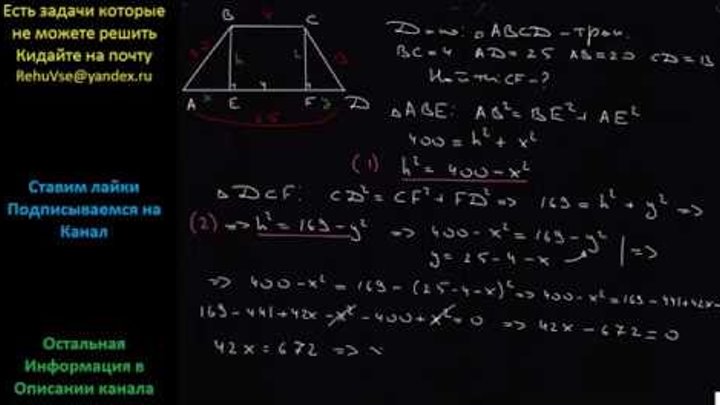 Есть задачи которые
не можете решить
Кидайте на почту
RehuVse@yandex.ru
Ставим лайки
Подписываемся на
Канал
Остальная
Информация в
Описании канала
B 4 C
h h
A E 4 F D
25
Дано: ABCD - трап.
BC=4 AD=25 AB=20 CD=13
Найти: CF-?
△ABE: AB²=BE²+AE²
400=h²+x²
(1) h²=400-x²
△DCF: CD²=CF²+FD² => 169=h²+y² =>
(2) => h²=169-y² => 400-x²=169-y²
y=25-4-x | =>
=> 400-x²=169-(25-4-x)² => 400-x²=169-441+42x-
169-441+42x-x²-400+x²=0 => 42x-672=0
42x=672 =>